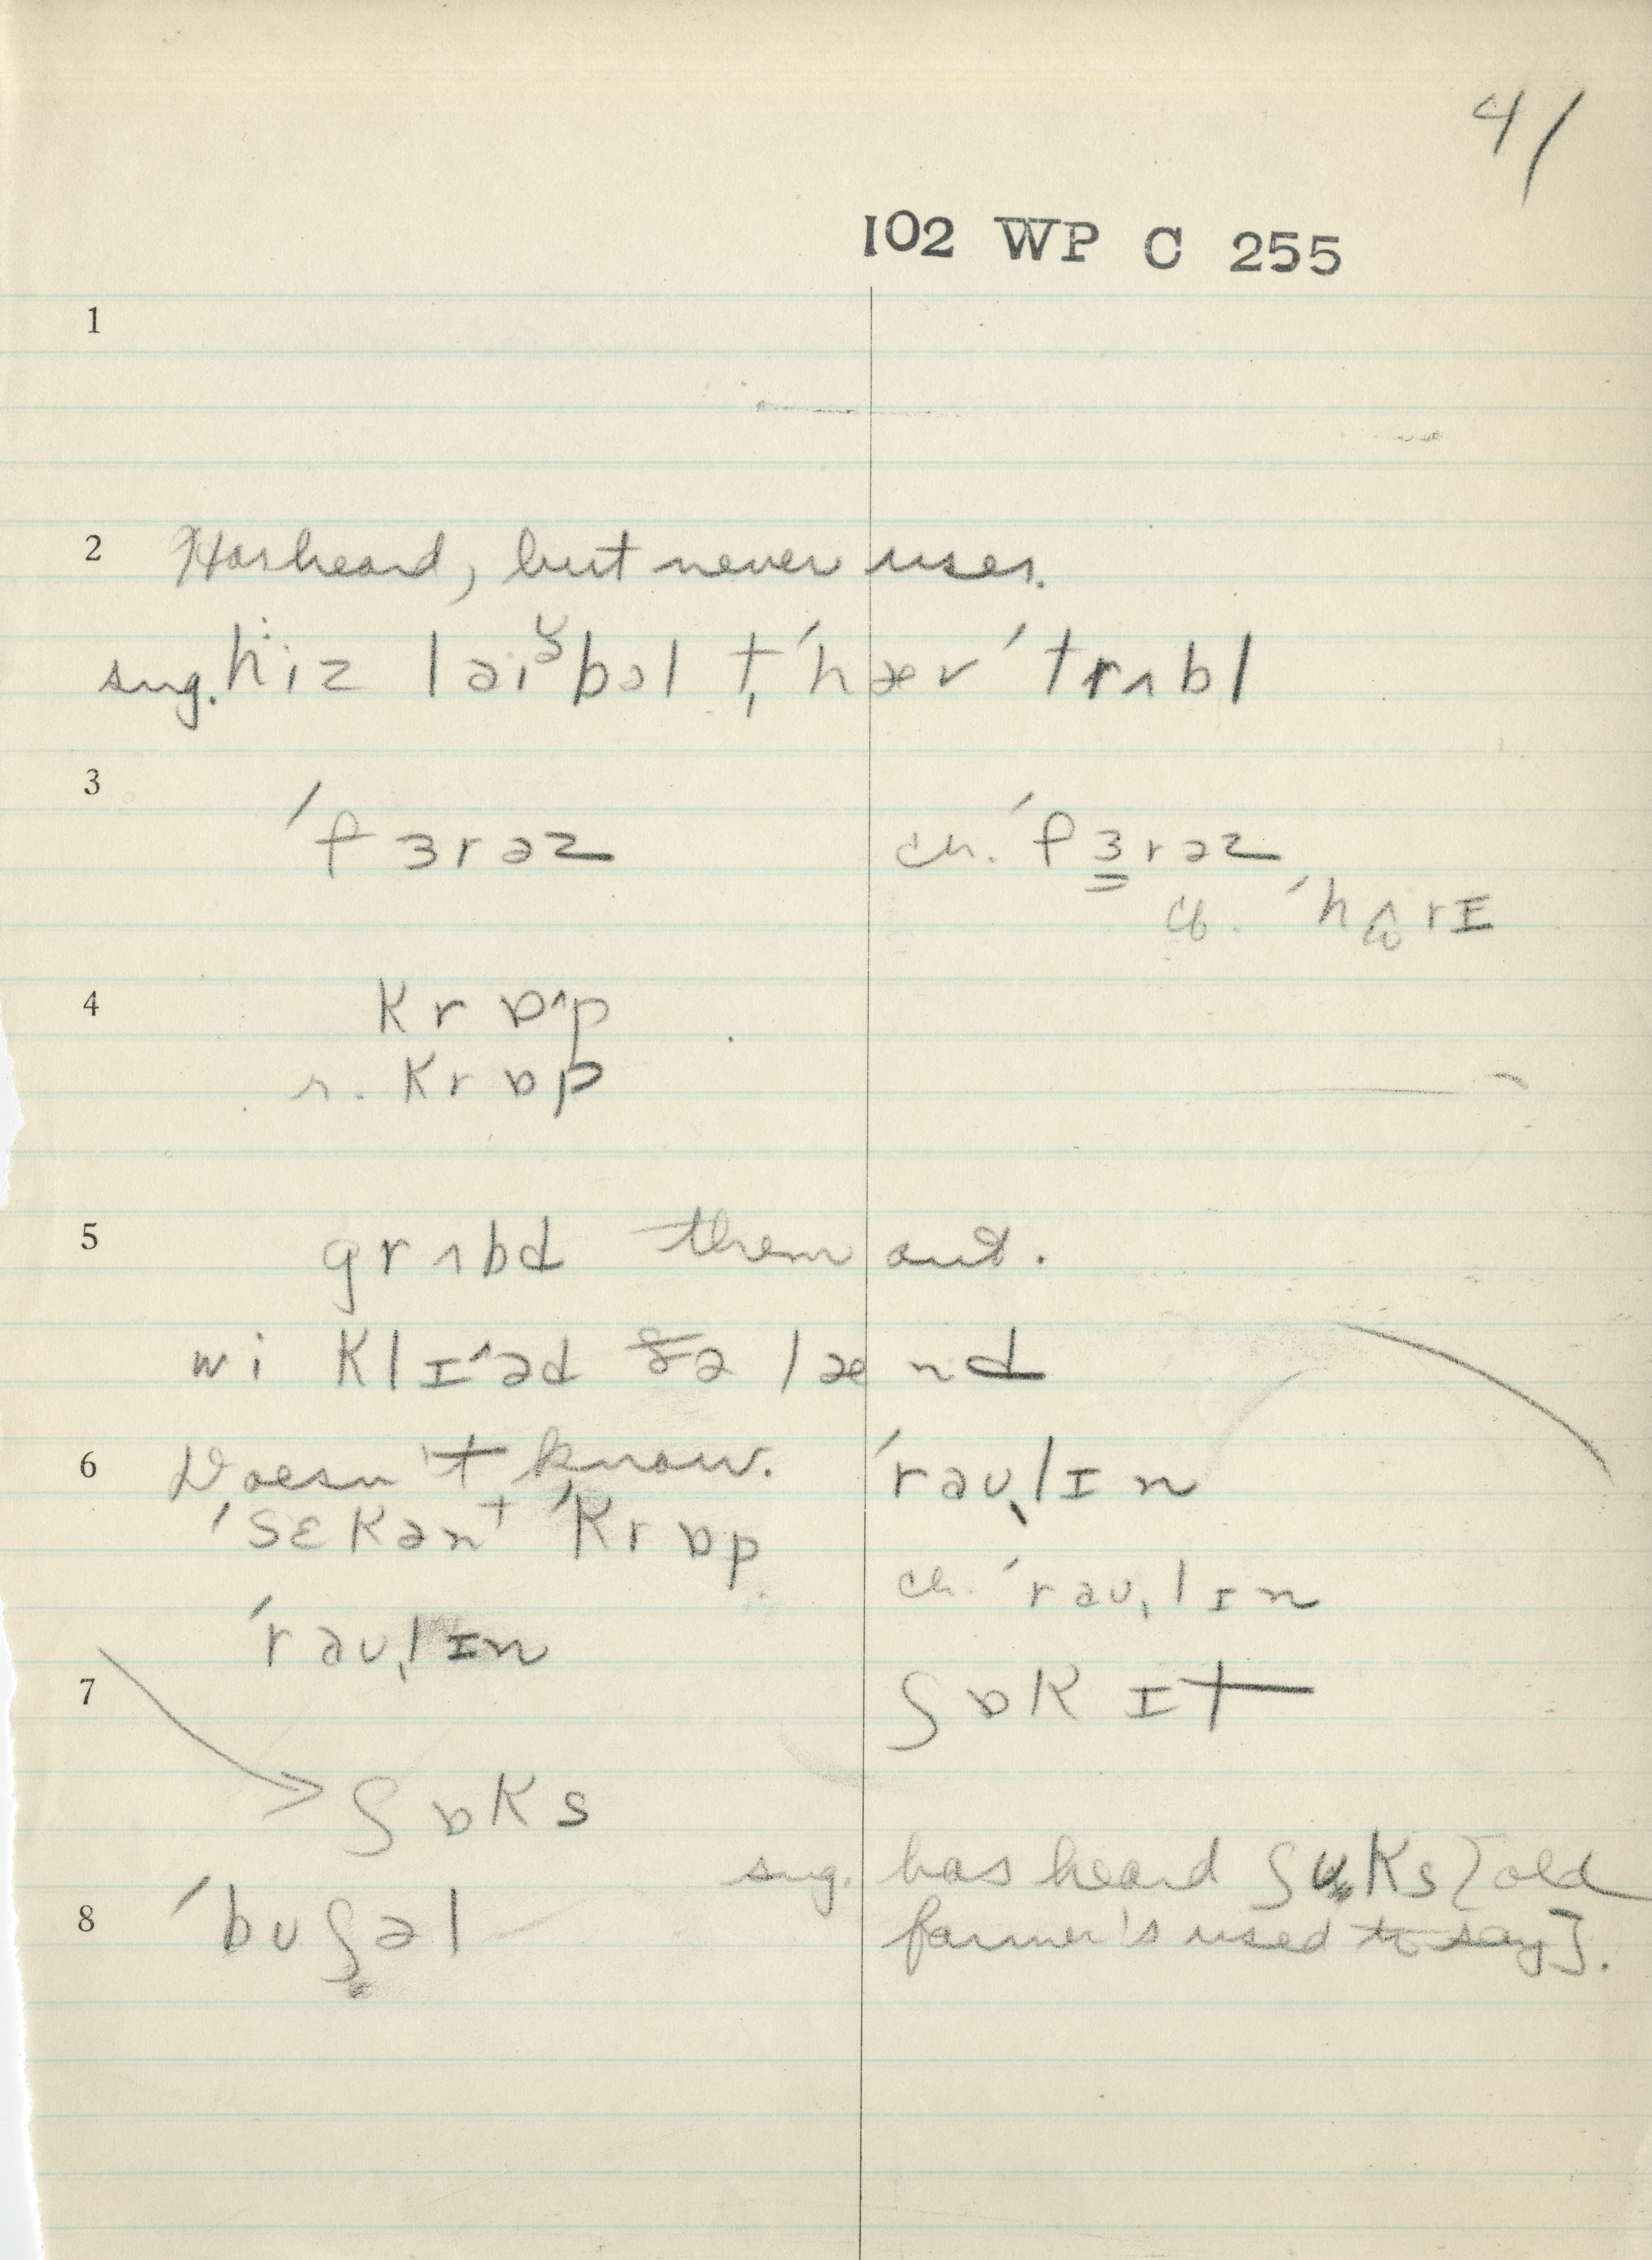 41
102 WP C 255
1
2 Has heard, but never uses.
sug. hiz laiᵊbəl t̩ ˈhæv ˈtrʌbl
3 ˈfɜrəz cr. ˈfɜrəz
cf. ˈhʌrɪ
4 krɒ^p
r. krɒp
5 grʌbd them out.
wi klɪ^əd ðə lænd
6 Doesn't know. ˈrəʊˌlɪn
ˈsɛkənt ˈkrɒp
cr. ˈrəʊˌlɪn
ˈrəʊˌlɪn
7 ʃɒk ɪt
ʃɒks
sug. has heard ʃʊks [old
8 ˈbuʃəl farmer's used to say].